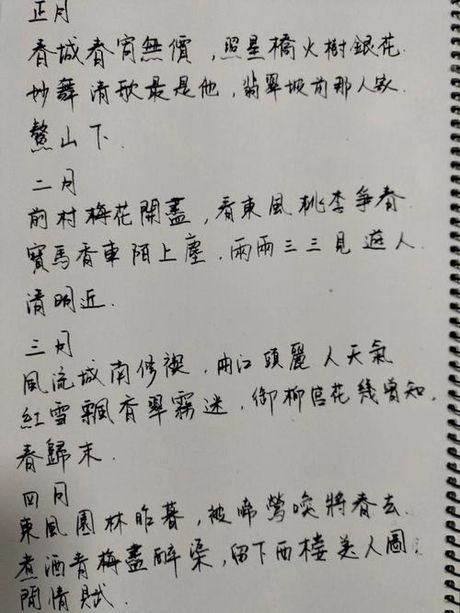 正月
春城春宵無價，照星橋火樹銀花
妙舞清歌最是他，翡翠坡前那人家
鰲山下
二月
前村梅花開盡，看東風桃李爭春
寶馬香車陌上塵，兩兩三三見遊人
清明近
三月
風流城南修禊，曲江頭麗人天氣
紅雪飄香翠霧迷，御柳宮花幾曾知
春歸未
四月
東風園林昨暮，被啼鶯喚將春去
煮酒青梅盡醉渠，留下西樓美人圖
閒情賦